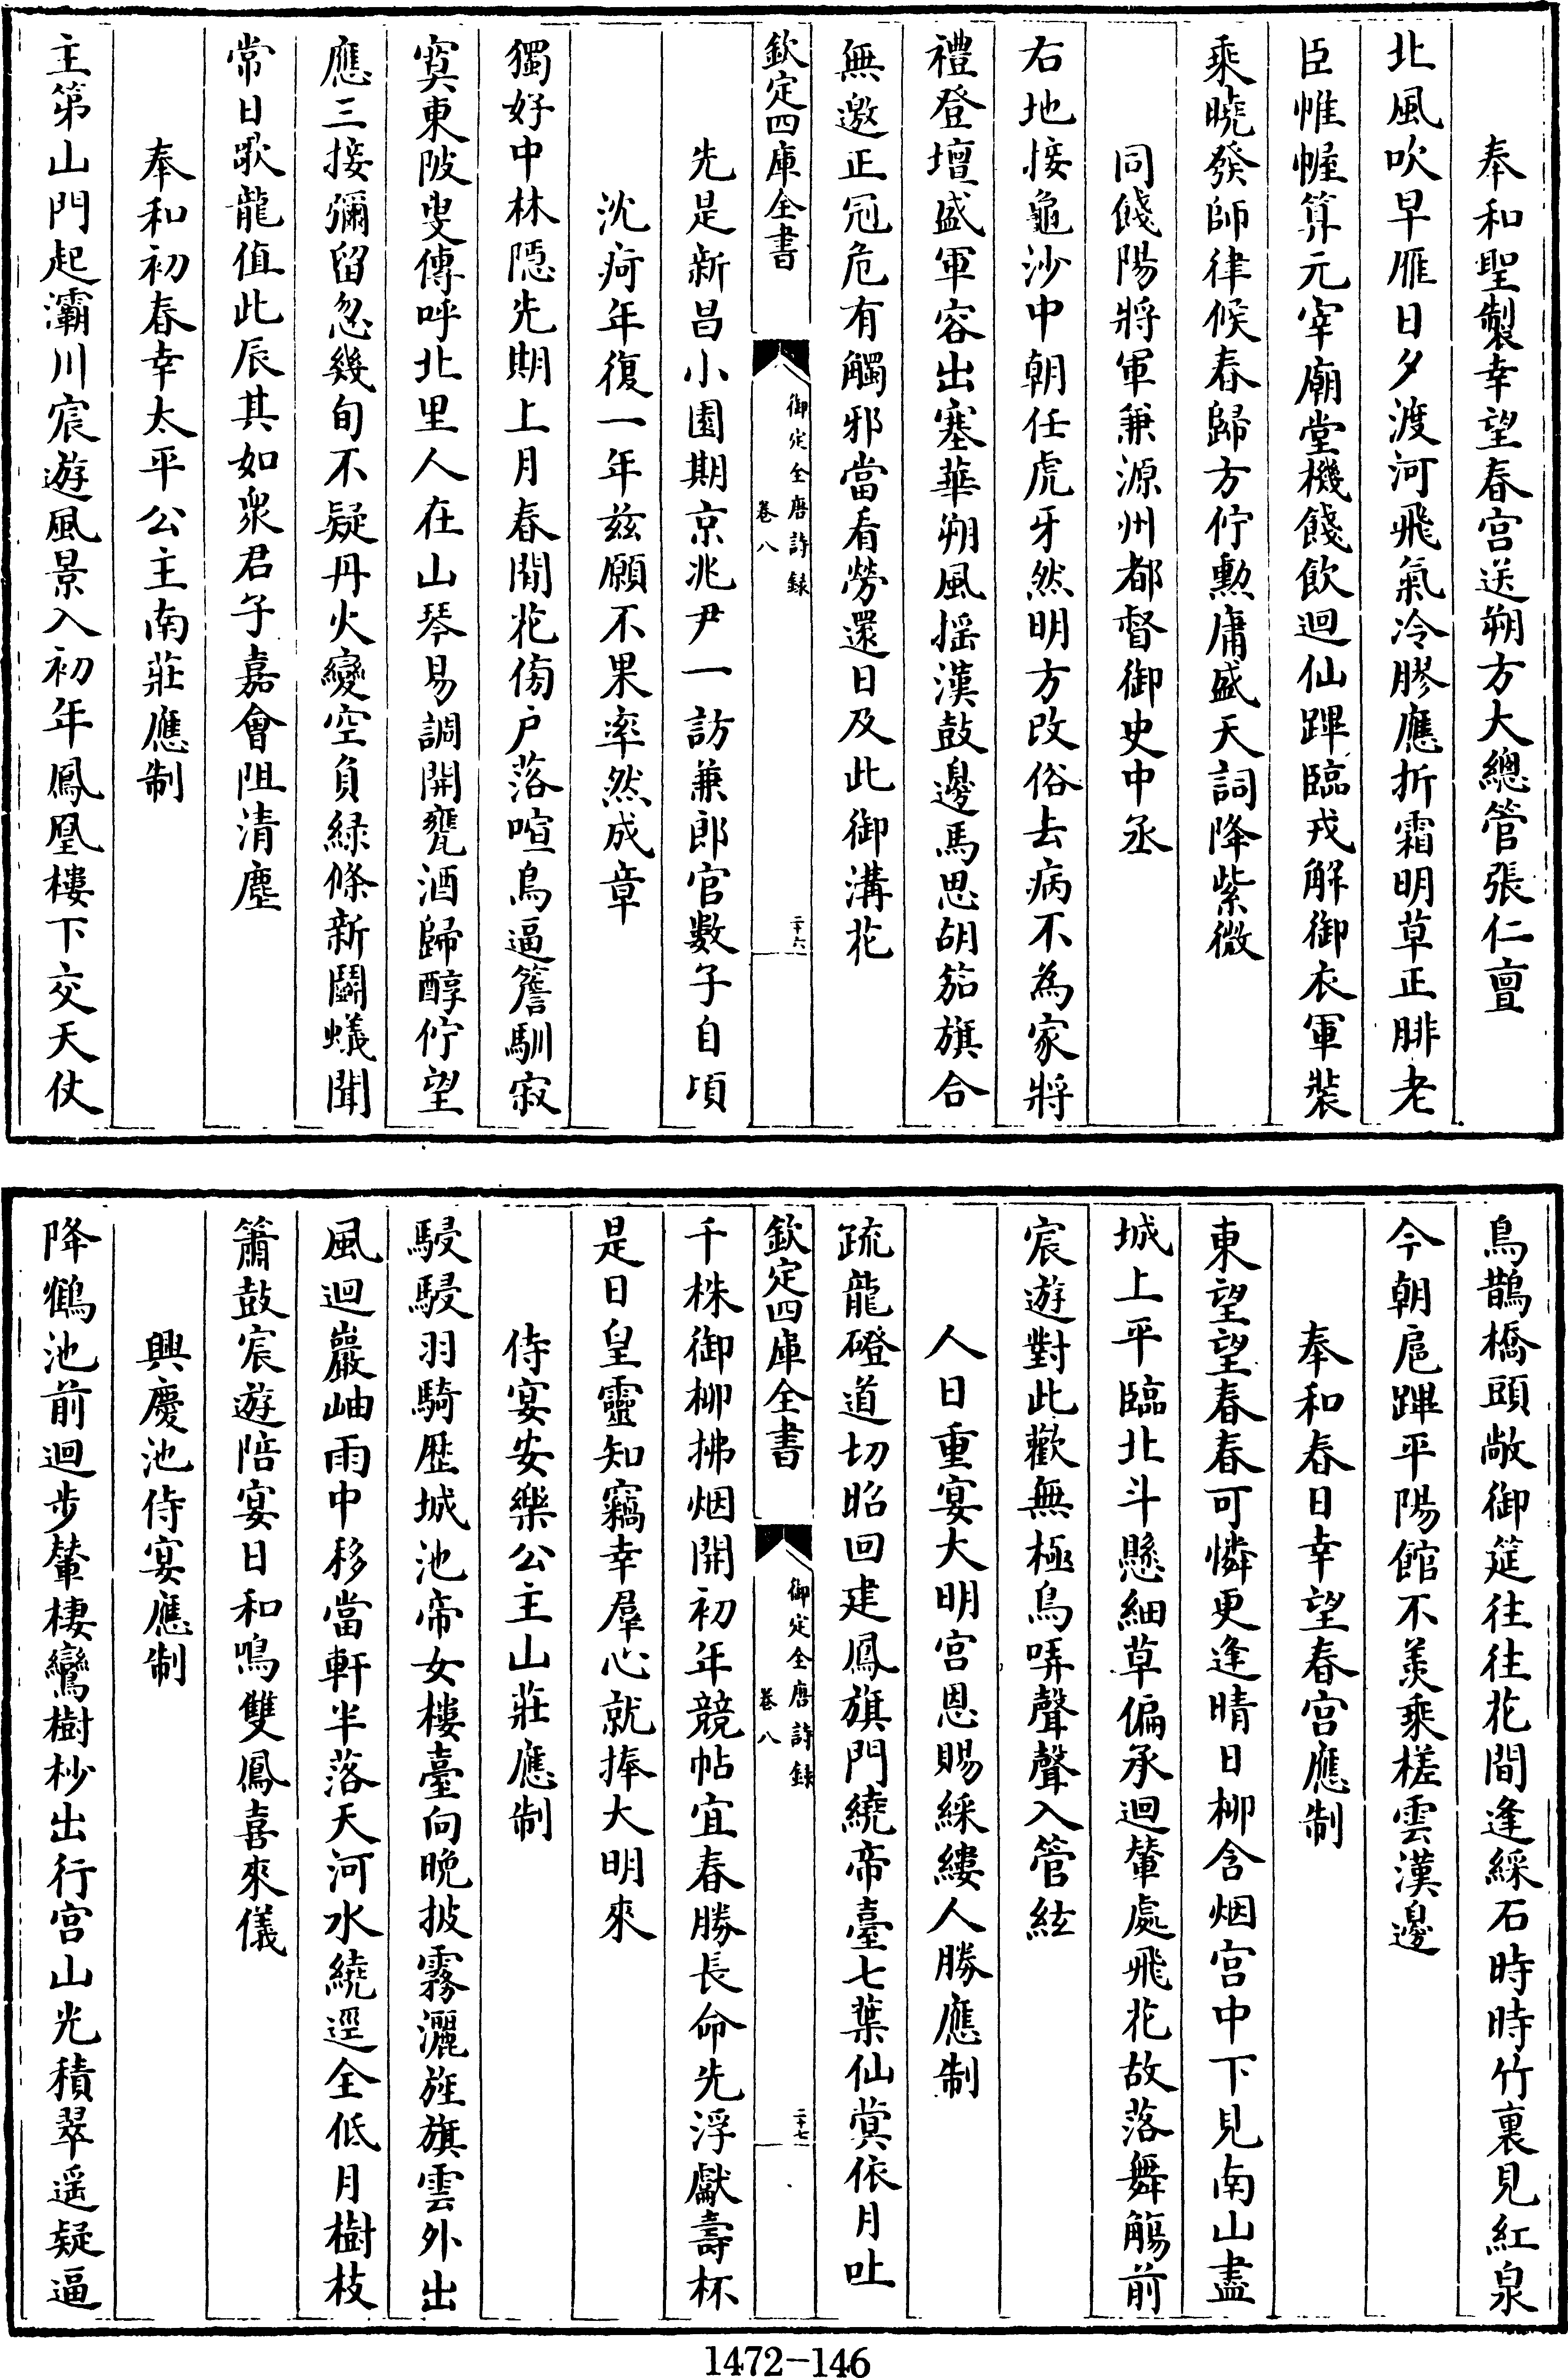 奉和聖製幸望春宫送朔方大總管張仁亶
北風吹早雁日夕渡河飛氣冷膠應折霜明草正腓老
臣帷幄算元宰廟堂機餞飲迴仙蹕臨戎解御衣軍裝
乘曉發師律候春歸方佇勲庸盛天詞降紫微
同餞陽將軍兼源州都督御史中丞
右地接龜沙中朝任虎牙然明方改俗去病不為家將
禮登壇盛軍容出塞華朔風揺漢鼓邊馬思胡笳旗合
無邀正冠危有觸邪當看勞還日及此御溝花
欽定四庫全書
御定全唐詩録
卷八
二十六
先是新昌小園期京兆尹一訪兼郎官數子自頃
沈疴年復一年兹願不果率然成章
獨好中林隱先期上月春閒花傍户落喧鳥逼簷馴寂
寞東陂叟傳呼北里人在山琴易調開甕酒歸醇佇望
應三接彌留忽幾旬不疑丹火變空負緑條新鬬蟻聞
常日歌龍值此辰其如衆君子嘉會阻清塵
奉和初春幸太平公主南莊應制
主第山門起灞川宸遊風景入初年鳳凰樓下交天仗
烏鵲橋頭敞御筵往往花間逢綵石時時竹裏見紅泉
今朝扈蹕平陽館不羨乘槎雲漢邊
奉和春日幸望春宫應制
東望望春春可憐更逢晴日柳含烟宫中下見南山盡
城上平臨北斗懸細草偏承迴輦處飛花故落舞觴前
宸遊對此歡無極鳥哢聲聲入管絃
人日重宴大明宫恩賜綵縷人勝應制
疏龍磴道切昭回建鳳旗門繞帝臺七葉仙蓂依月吐
欽定四庫全書
御定全唐詩録
卷八
二十七
千株御柳拂烟開初年競帖宜春勝長命先浮獻壽杯
是日皇靈知竊幸羣心就捧大明來
侍宴安樂公主山莊應制
駸駸羽騎歷城池帝女樓臺向晚披霧灑旌旗雲外出
風迴巖岫雨中移當軒半落天河水繞逕全低月樹枝
簫鼓宸遊陪宴日和鳴雙鳳喜來儀
興慶池侍宴應制
降鶴池前迴步輦棲鸞樹杪出行宫山光積翠遥疑逼
1472-146